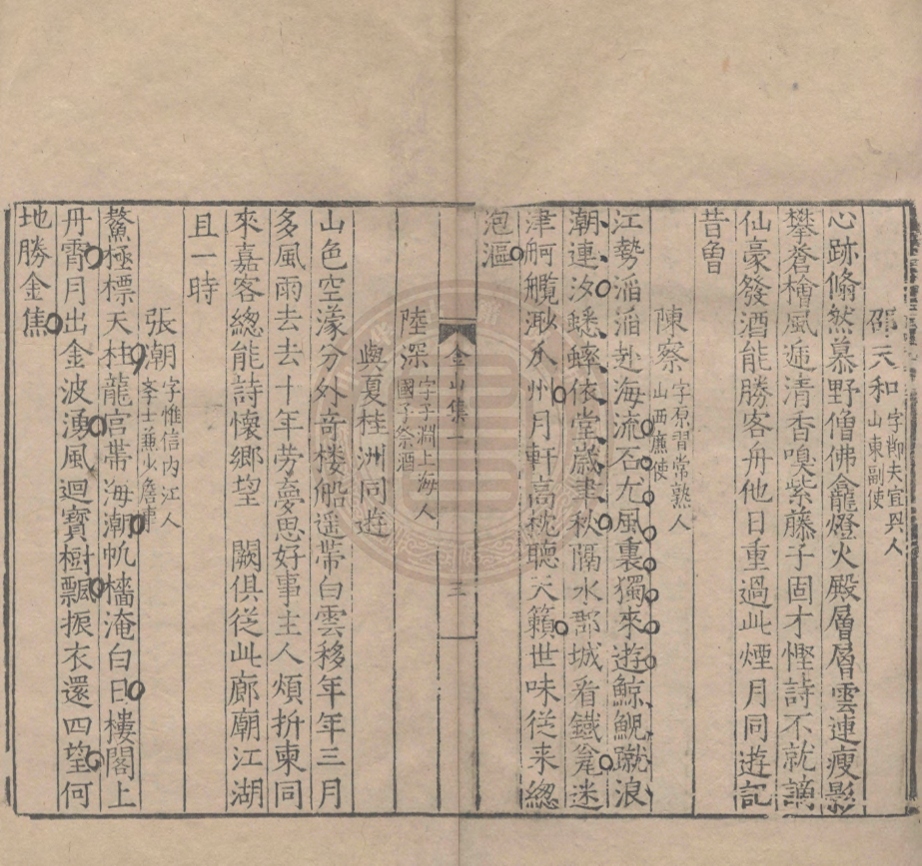 邵天和字節夫宜興人山東副使
心跡翛然慕野僧佛龕燈火殿層層雲連瘦影
攀蒼檜風遞清香嗅紫藤子固才慳詩不就謫
仙豪發酒能勝客舟他日重過此煙月同遊記
昔曾
陳察字原習常熟人山西廉使
江勢滔滔赴海流石尤風裏獨來遊鯨鯢蹴浪
潮連汐蟋蟀依堂歲聿秋隔水郡城看鐵甕迷
津舸艦瓜州月軒高枕聽天籟世味從来總
泡漚
金山集一
三
陸深字子淵上海人國子祭酒
與夏桂洲同遊
山色空濛分外奇樓船遥帶白雲移年年三月
多風雨去去十年勞夢思好事主人煩折柬同
來嘉客總能詩懷鄉望 闕俱從此廊廟江湖
且一時
張潮字惟信内江人學士兼少詹事
鰲極標天柱龍宫帯海潮帆檣淹白日樓閣上
丹霄月出金波湧風迴寳樹飄振衣還四望何
地勝金焦